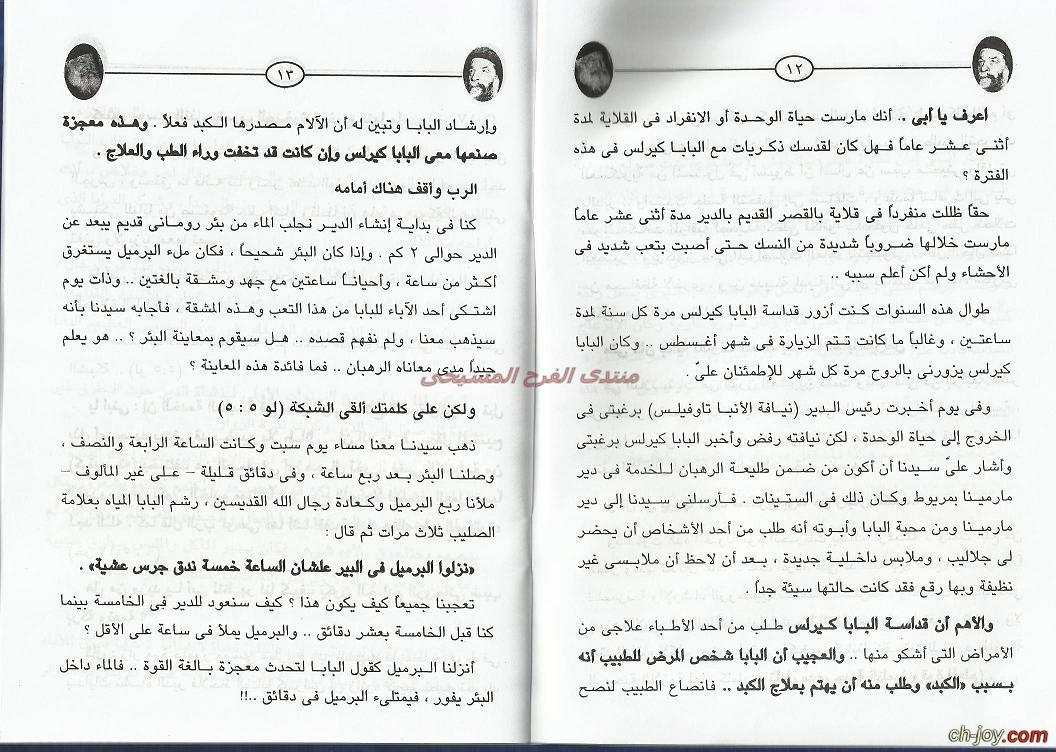 ١٢
اعرف يا أبى .. أنك مارست حياة الوحدة أو الانفراد فى القلاية لمدة
أثنى عشر عاماً فهل كان لقدسك ذكريات مع البابا كيرلس فى هذه
الفترة ؟
حقاً ظللت منفرداً فى قلاية بالقصر القديم بالدير مدة أثنى عشر عاماً
مارست خلالها ضروباً شديدة من النسك حتى أصبت بتعب شديد فى
الأحشاء ولم أكن أعلم سببه ..
طوال هذه السنوات كنت أزور قداسة البابا كيرلس مرة كل سنة لمدة
ساعتين ، وغالباً ما كانت تتم الزيارة فى شهر أغسطس .. وكان البابا
كيرلس يزورنى بالروح مرة كل شهر للإطمئنان علىّ .
وفى يوم أخبرت رئيس الدير (نيافة الأنبا تاوفيلس) برغبتى فى
الخروج إلى حياة الوحدة ، لكن نيافته رفض وأخبر البابا كيرلس برغبتى
وأشار علىّ سيدنا أن أكون من ضمن طليعة الرهبان للخدمة فى دير
مارمينا بمريوط وكان ذلك فى الستينات . فأرسلنى سيدنا إلى دير
مارمينا ومن محبة البابا وأبوته أنه طلب من أحد الأشخاص أن يحضر
لى جلاليب ، وملابس داخلية جديدة ، بعد أن لاحظ أن ملابسى غير
نظيفة وبها رقع فقد كانت حالتها سيئة جداً .
والأهم أن قداسة البابا كيرلس طلب من أحد الأطباء علاجى من
الأمراض التى أشكو منها .. والعجيب أن البابا شخص المرض للطبيب أنه
بسبب «الكبد» وطلب منه أن يهتم بعلاج الكبد .. فانصاع الطبيب لنصح
١٣
وإرشاد البابا وتبين له أن الآلام مصدرها الكبد فعلاً . وهذه معجزة
صنعها معى البابا كيرلس وإن كانت قد تخفت وراء الطب والعلاج .
الرب وأقف هناك أمامه
كنا فى بداية إنشاء الدير نجلب الماء من بئر رومانى قديم يبعد عن
الدير حوالى ٢ كم . وإذا كان البئر شحيحاً ، فكان ملء البرميل يستغرق
أكثر من ساعة ، وأحياناً ساعتين مع جهد ومشقة بالغتين .. وذات يوم
اشتكى أحد الآباء للبابا من هذا التعب وهذه المشقة ، فأجابه سيدنا بأنه
سيذهب معنا ، ولم نفهم قصده .. هل سيقوم بمعاينة البئر ؟ .. هو يعلم
جيداً مدى معاناه الرهبان .. فما فائدة هذه المعاينة ؟
منتدى الفرح المسيحى
ولكن على كلمتك ألقى الشبكة (لو ٥ : ٥)
ذهب سيدنا معنا مساء يوم سبت وكانت الساعة الرابعة والنصف ،
وصلنا البئر بعد ربع ساعة ، وفى دقائق قليلة – على غير المألوف –
ملأنا ربع البرميل وكعادة رجال الله القديسين ، رشم البابا المياه بعلامة
الصليب ثلاث مرات ثم قال :
«نزلوا البرميل فى البير علشان الساعة خمسة ندق جرس عشية» .
تعجبنا جميعاً كيف يكون هذا ؟ كيف سنعود للدير فى الخامسة بينما
كنا قبل الخامسة بعشر دقائق .. والبرميل يملأ فى ساعة على الأقل ؟
أنزلنا البرميل كقول البابا لتحدث معجزة بالغة القوة .. فالماء داخل
البئر يفور ، فيمتلىء البرميل فى دقائق ..!!
ch-joy.com